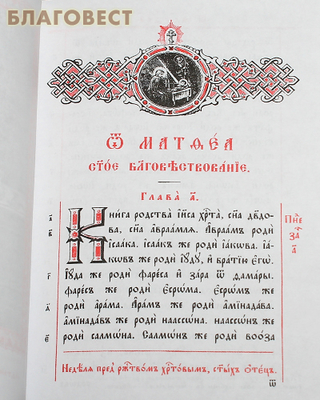 БЛАГОВЕСТ
Ѿ МАТѲЕА
ст҃ое бл҃говѣствованїе.
Глава̀ а҃.
Кни́га родства̀ і҆и҃са хрⷭ҇та̀, сн҃а дв҃дова, сн҃а а҆враа́мля.
а҆враа́мъ же родѝ і҆саа́ка. і҆саа́къ же родѝ і҆а́кѡва. і҆а́-
кѡвъ же родѝ і҆ꙋ́дꙋ, и҆ бра́тїю є҆гѡ̀.
І҆ꙋ́да же родѝ фаре́са и҆ за́ра ѿ ѳама́ры.
фаре́съ же родѝ є҆срѡ́ма. є҆срѡ́мъ же
родѝ а҆ра́ма. А҆ра́мъ же родѝ а҆мїнада́ва.
а҆мїнада́въ же родѝ наассѡ́на. наассѡ́нъ же
родѝ салмѡ́на. Салмѡ́нъ же родѝ воо́за
Недѣ́лѧ пред̾ рж҃тво́мъ хрⷭ҇то́вымъ, ст҃ы́хъ ѻ҆те́цъ.
ѿ